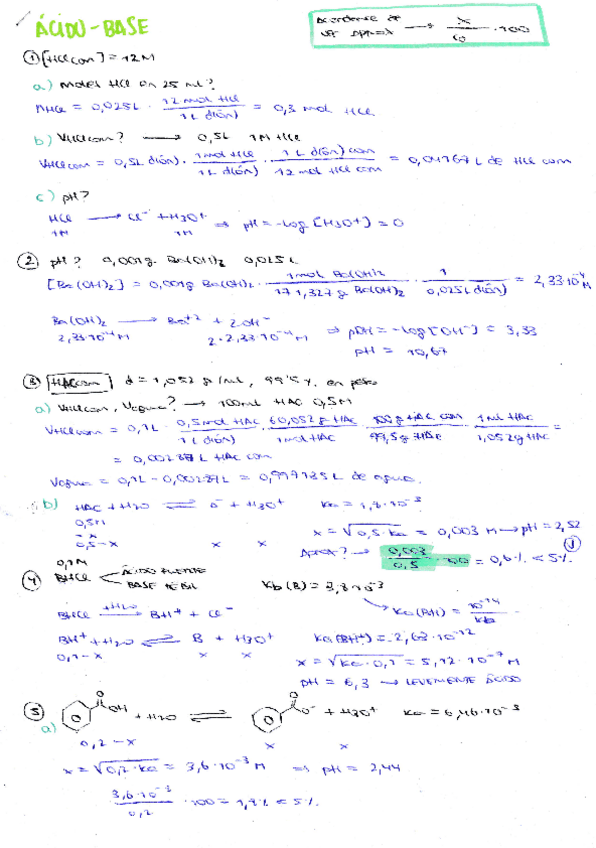 ÁCIDO-BASE
Acordarse de ver aprox → x/c₀ · 100
① [HCl con] = 12 M
a) moles HCl en 25 ml?
nHCl = 0,025L · 12 mol HCl / 1 L dión = 0,3 mol HCl
b) VHCl con? → 0,5L 1M HCl
VHCl con = 0,5L dión · 1 mol HCl / 1 L dión · 1 L dión con / 12 mol HCl con = 0,04167 L de HCl con
c) pH?
HCl → Cl⁻ + H3O⁺ ⇒ pH = -log [H3O⁺] = 0
1M 1M
② pH? 0,001g Ba(OH)₂ 0,025L
[Ba(OH)₂] = 0,001g Ba(OH)₂ · 1 mol Ba(OH)₂ / 171,327 g Ba(OH)₂ · 1 / 0,025L dión = 2,33·10⁻⁴ M
Ba(OH)₂ → Ba⁺² + 2OH⁻ ⇒ pOH = -log [OH⁻] = 3,33
2,33·10⁻⁴ M 2·2,33·10⁻⁴ M pH = 10,67
③ HAc con d = 1,052 g/ml, 99'5 % en peso
a) VHAc con, Vagua? → 100ml HAC 0,5M
VHAc con = 0,1L · 0,5 mol HAC / 1 L dión · 60,052 g HAC / 1 mol HAC · 100 g HAC con / 99,5 g HAC · 1 ml HAC / 1,052 g HAC =
= 0,00287 L HAC con
Vagua = 0,1L - 0,00287L = de agua
b) HAC + H2O ⇌ + H3O⁺
0,5M
-x
0,5-x x x
x = √0,5·Ka = 0,003 M → pH = 2,52
Aprox? → 0,003 / 0,5 · 100 = 0,6 % < 5%
0,1M
④ BHCl ÁCIDO FUERTE
BASE DÉBIL
Kb (B) = 3,8·10⁻³
BHCl +H2O → BH⁺ + Cl⁻
Ka (BH) = 10⁻¹⁴ / Kb
BH⁺ + H2O ⇌ B + H3O⁺ Ka (BH⁺) = 2,63·10⁻¹²
0,1-x x x
x = √Ka·0,1 = 5,12·10⁻⁷ M
pH = 6,3 → LEVEMENTE ÁCIDO
⑤ a) OH + H2O ⇌ O⁻ + H3O⁺
0,2-x x x
x = √0,2·Ka = 3,6·10⁻³ M ⇒ pH = 2,44
3,6·10⁻³ / 0,2 · 100 = 1,8% < 5%